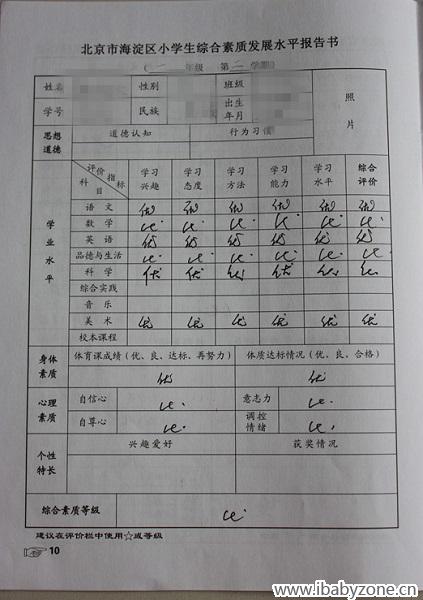 北京市海淀区小学生综合素质发展水平报告书
年级 第 学期
姓名 性别 班级 照片
学号 民族 出生年月
思想道德 道德认知 行为习惯
学业水平 科目 评价指标 学习兴趣 学习态度 学习方法 学习能力 学习水平 综合评价
语文 优 优 优 优 优 优
数学
英语 优 优 优 优 优 优
品德与生活
科学 优 优 优 优 优
综合实践
音乐
美术 优 优 优 优 优 优
校本课程
身体素质 体育课成绩(优、良、达标、再努力) 体质达标情况(优、良、合格)
优 优
心理素质 自信心 意志力
自尊心 调控情绪
个性特长 兴趣爱好 获奖情况
综合素质等级
建议在评价栏中使用☆或等级
10
www.ibabyzone.cn